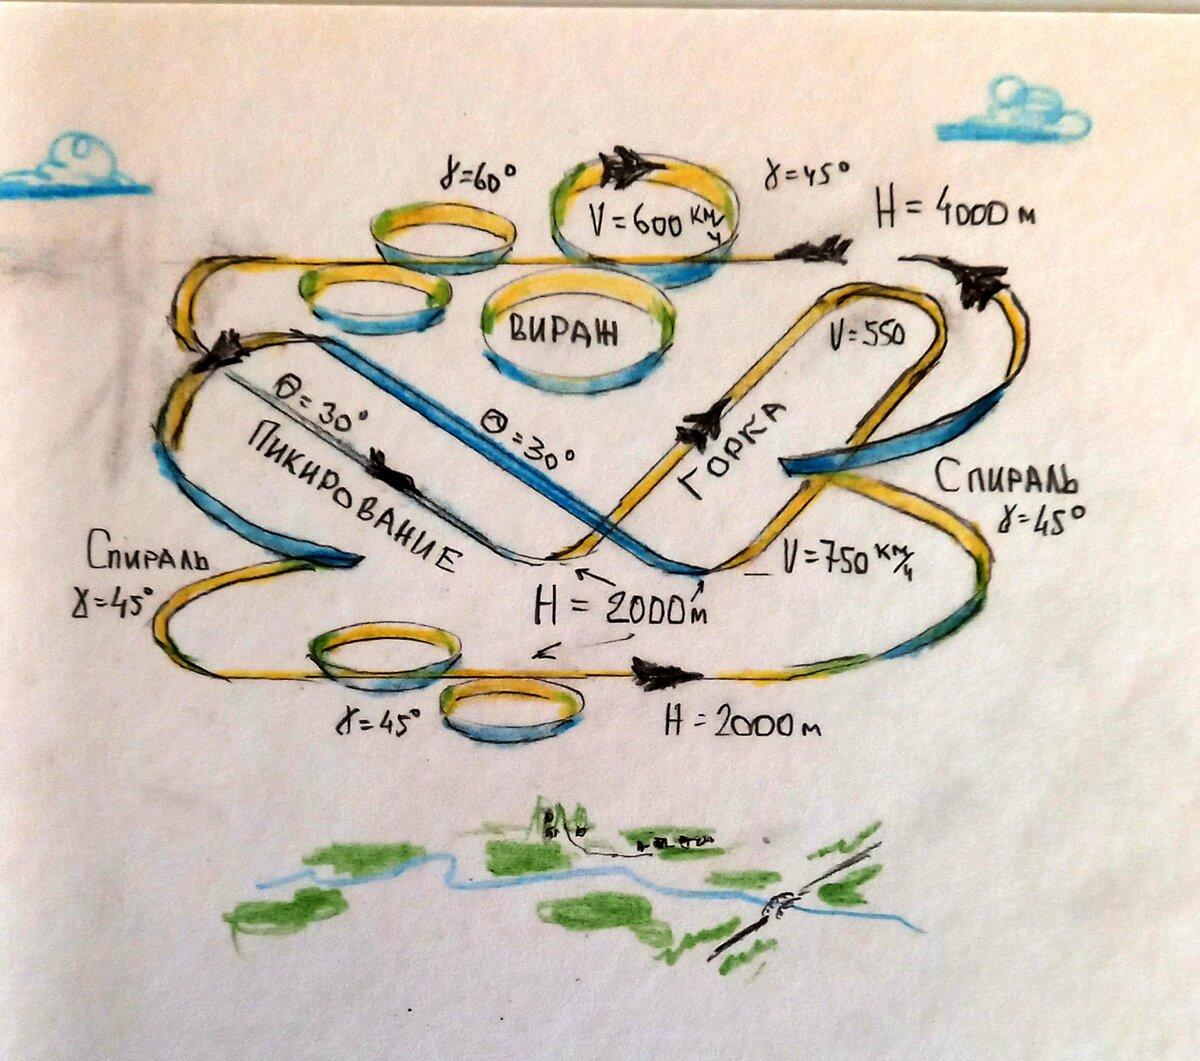 γ=60°
γ=45°
V=600 км/ч
H=4000 м
ВИРАЖ
V=550
Θ=30°
Θ=30°
ПИКИРОВАНИЕ
ГОРКА
СПИРАЛЬ
γ=45°
СПИРАЛЬ
γ=45°
V=750 км/ч
H = 2000м
γ=45°
H=2000м